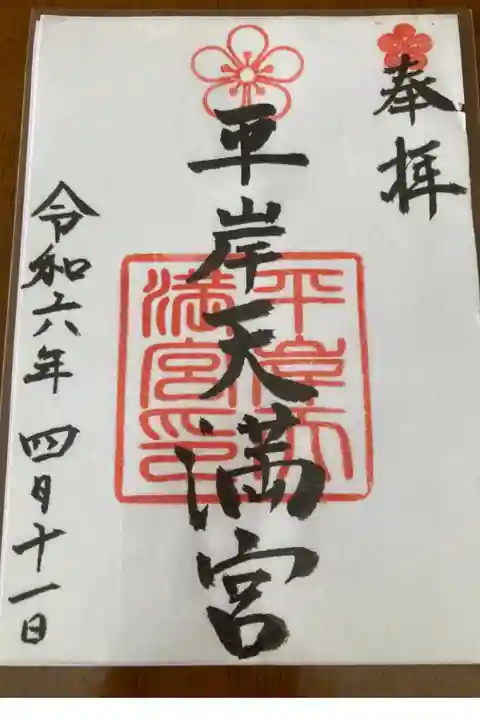 奉拝
平岸天満宮
平岸天満宮印
令和六年四月十一日